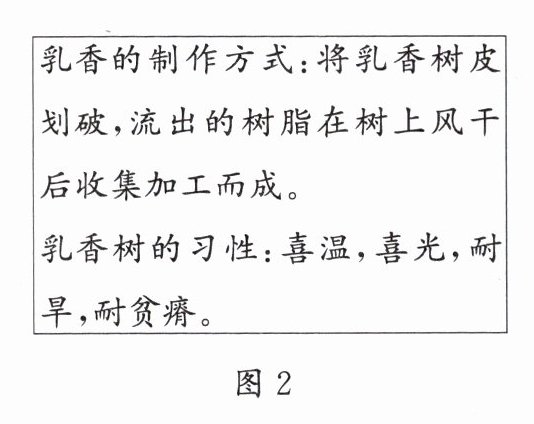 乳香的制作方式:将乳香树皮
划破,流出的树脂在树上风干
后收集加工而成。
乳香树的习性:喜温,喜光,耐
旱,耐贫瘠。
图 2